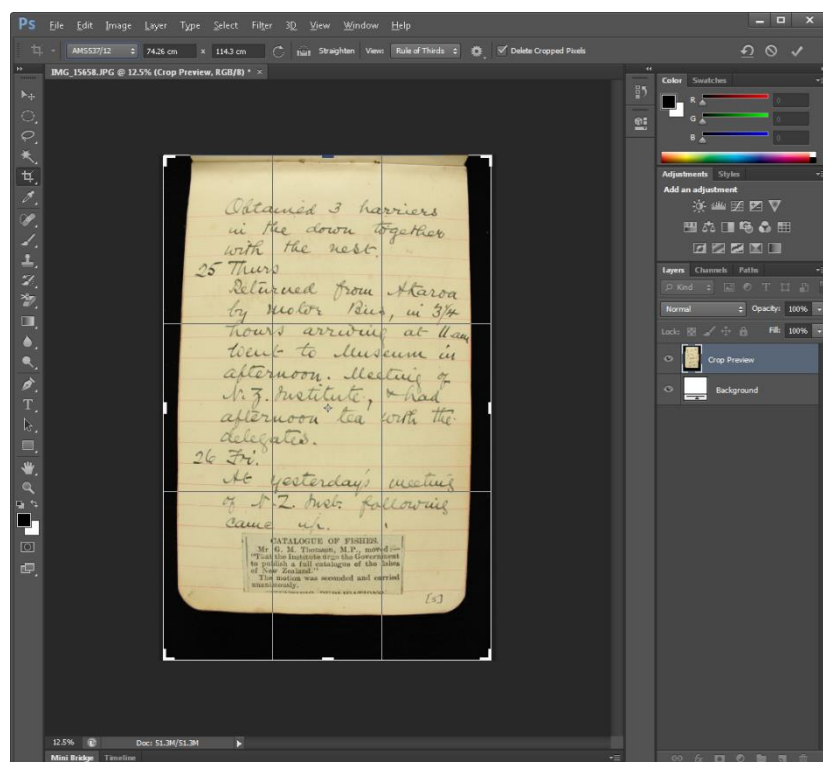 Ps File Edit Image Layer Type Select Filter 3D View Window Help
AMS537/12 74.26 cm x 114.3 cm Straighten View: Rule of Thirds Delete Cropped Pixels
IMG_15658.JPG @ 12.5% (Crop Preview, RGB/8) * ×
Obtained 3 harriers
in the down together
with the nest.
25 Thurs
Returned from Akaroa
by motor Bus, in 3/4
hours arriving at 11 am
Went to Museum in
afternoon. Meeting of
N. Z. Institute, & had
afternoon tea with the
delegates.
26 Fri.
At yesterday's meeting
of N. Z. Inst. following
came up.
CATALOGUE OF FISHES.
Mr G. M. Thomson, M.P., moved :—
"That the Institute urge the Government
to publish a full catalogue of the fishes
of New Zealand."
The motion was seconded and carried
unanimously.
[5]
12.5% Doc: 51.3M/51.3M
Mini Bridge Timeline
Color Swatches
R 0
G 0
B 0
Adjustments Styles
Add an adjustment
Layers Channels Paths
Kind
Normal Opacity: 100%
Lock: Fill: 100%
Crop Preview
Background